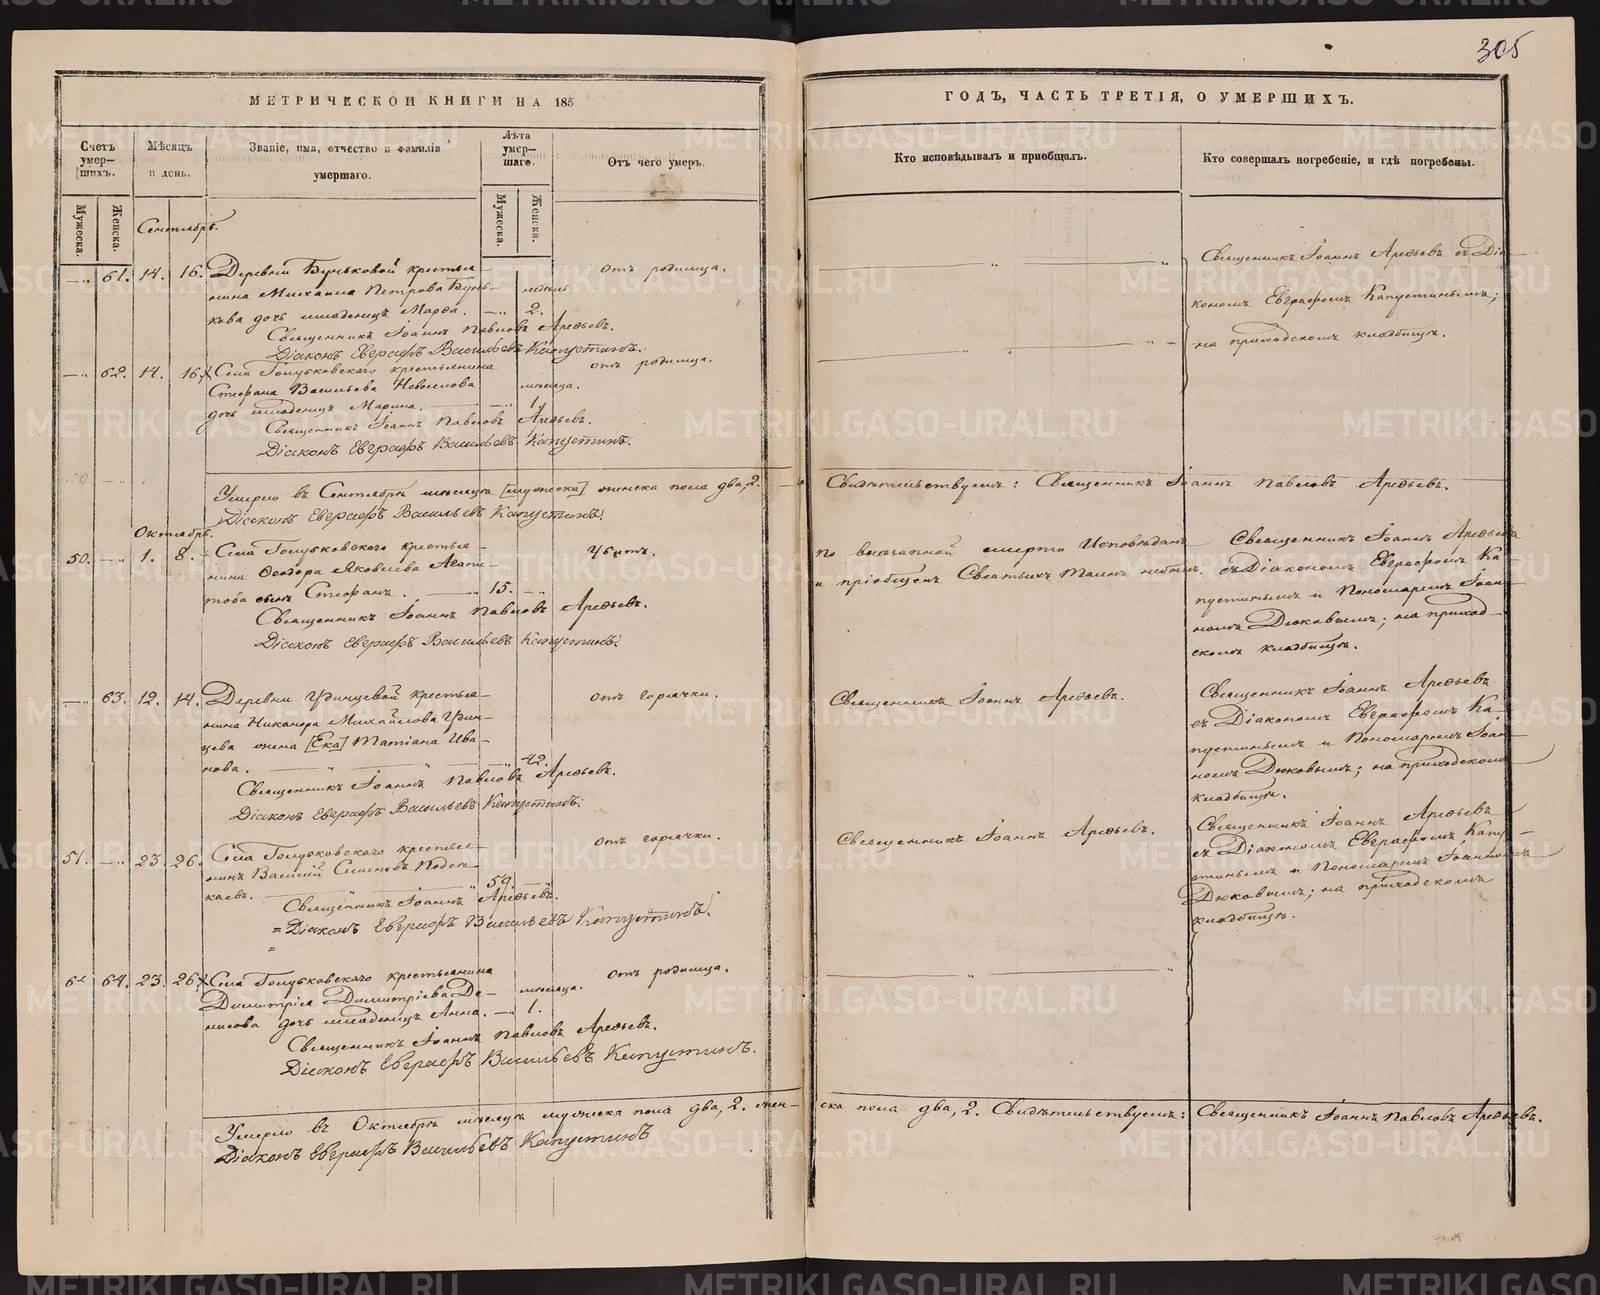 305
МЕТРИЧЕСКОЙ КНИГИ НА 185
ГОДЪ, ЧАСТЬ ТРЕТІЯ, О УМЕРШИХЪ.
Счетъ умер—шихъ.
Мужеска.
Женска.
Мѣсяцъ и день.
Званіе, имя, отчество и фамилія умершаго.
Лѣта умер—шаго.
Мужеска.
Женска.
Отъ чего умеръ.
Кто исповѣдывалъ и пріобщалъ.
Кто совершалъ погребеніе, и гдѣ погребены.
Сентябрь.
61. 14. 16. Деревни Буньковой крестья—
нина Михаила Петрова Бунь— недѣль
кова дочь младенецъ Марѳа. 2.
отъ родимца.
Священникъ Іоаннъ Павловъ Арефьевъ.
Діаконъ Евграфъ Васильевъ Капустинъ.
Священникъ Іоаннъ Арефьевъ съ Діа—
кономъ Евграфомъ Капустинымъ;
на приходскомъ кладбищѣ.
62. 14. 16. Села Голубковскаго крестьянина
Стефана Васильева Новоселова мѣсяца.
дочь младенецъ Марина. 1.
отъ родимца.
Священникъ Іоаннъ Павловъ Арефьевъ.
Діаконъ Евграфъ Васильевъ Капустинъ.
Умерло въ Сентябрѣ мѣсяцѣ [мужеска] женска пола два, 2. Свидѣтельствуемъ: Священникъ Іоаннъ Павловъ Арефьевъ.
Діаконъ Евграфъ Васильевъ Капустинъ.
Октябрь.
50. 1. 8. Села Голубковскаго крестья—
нина Ѳеодора Яковлева Агапи—
това сынъ Стефанъ. 15.
Убитъ.
Священникъ Іоаннъ Павловъ Арефьевъ.
Діаконъ Евграфъ Васильевъ Капустинъ.
по внезапной смерти Исповѣданъ
и пріобщенъ Святыхъ Таинъ небылъ.
Священникъ Іоаннъ Арефьевъ
съ Діакономъ Евграфомъ Ка—
пустинымъ и Пономаремъ Іоан—
номъ Дюковымъ; на приход—
скомъ кладбищѣ.
63. 12. 14. Деревни Удинцевой крестья—
нина Никанора Михайлова Удин—
цева жена [Ека] Татіана Ива—
нова. 42.
отъ горячки.
Священникъ Іоаннъ Павловъ Арефьевъ.
Діаконъ Евграфъ Васильевъ Капустинъ.
Священникъ Іоаннъ Арефьевъ.
Священникъ Іоаннъ Арефьевъ
съ Діакономъ Евграфомъ Ка—
пустинымъ и Пономаремъ Іоан—
номъ Дюковымъ; на приходскомъ
кладбищѣ.
51. 23. 26. Села Голубковскаго крестья—
нинъ Василій Семеновъ
59.
отъ горячки.
Священникъ Іоаннъ Арефьевъ.
Діаконъ Евграфъ Васильевъ Капустинъ.
Священникъ Іоаннъ Арефьевъ.
Священникъ Іоаннъ Арефьевъ
съ Діакономъ Евграфомъ Капу—
стинымъ и Пономаремъ Іоанномъ
Дюковымъ; на приходскомъ
кладбищѣ.
64. 23. 26. Села Голубковскаго крестьянина
Димитрія Димитріева Де— мѣсяца.
нисова дочь младенецъ Анна. 1.
отъ родимца.
Священникъ Іоаннъ Павловъ Арефьевъ.
Діаконъ Евграфъ Васильевъ Капустинъ.
Умерло въ Октябрѣ мѣсяцѣ мужеска пола два, 2. жен—ска пола два, 2. Свидѣтельствуемъ: Священникъ Іоаннъ Павловъ Арефьевъ.
Діаконъ Евграфъ Васильевъ Капустинъ
METRIKI.GASO-URAL.RU